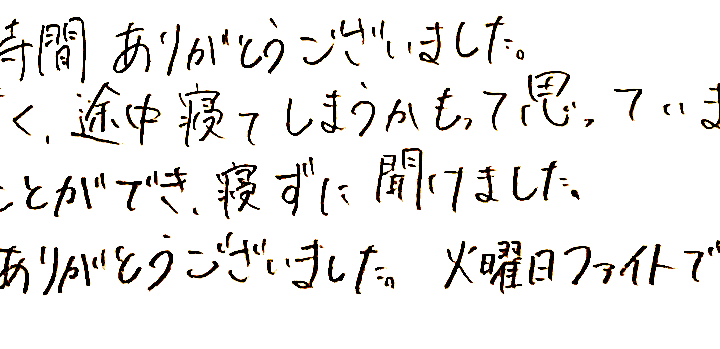 時間 ありがとうございました。
く、途中寝てしまうかもって思っていま
ことができ、寝ずに聞けました。
ありがとうございました。 火曜日ファイトで